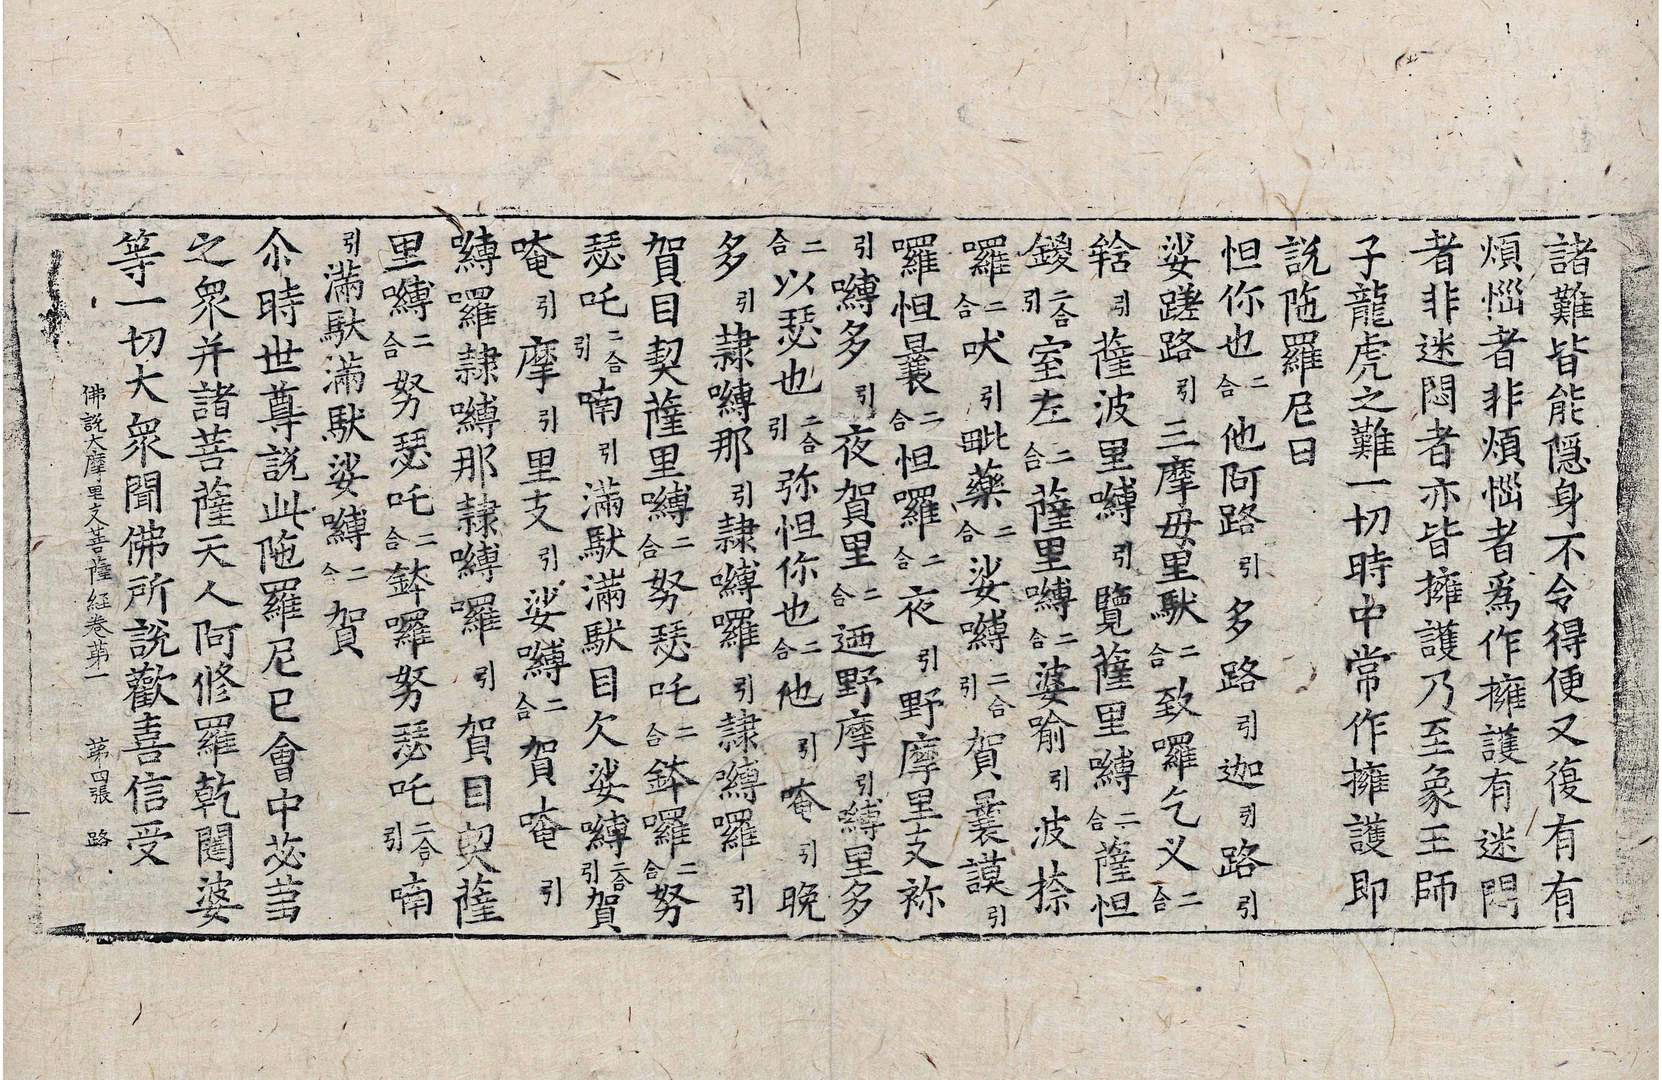 諸難皆能隱身不令得便又復有有
煩惱者非煩惱者爲作擁護有迷悶
者非迷悶者亦皆擁護乃至象王師
子龍虎之難一切時中常作擁護即
說陁羅尼曰
怛你也二合他阿路引多路引迦引路引
娑蹉路引三摩毋里馱二合致囉乞义二合
輅引薩波里嚩引覽薩里嚩二合薩怛
鑁二合引室左二合薩里嚩二合婆喻引波捺
囉二合吠引毗藥二合娑嚩二合引賀曩謨引
囉怛曩二合怛囉二合夜引野摩里支祢
引嚩多引夜賀里二合迺野摩引嚩里多
二合以瑟也二合引弥怛你也二合他引唵引晚
多引隷嚩那引隷嚩囉引隷嚩囉引
賀目契薩里嚩二合努瑟吒二合鉢囉二合努
瑟吒二合引喃引滿馱滿馱目欠娑嚩二合引賀
唵引摩引里支引娑嚩二合賀唵引
嚩囉隷嚩那隷嚩囉引賀目契薩
里嚩二合努瑟吒二合鉢囉努瑟吒二合引喃
引滿馱滿馱娑嚩二合賀
尒時世尊說此陁羅尼已會中苾芻
之衆并諸菩薩天人阿修羅乾闥婆
等一切大衆聞佛所說歡喜信受
佛說大摩里支菩薩經卷第一　第四張　路